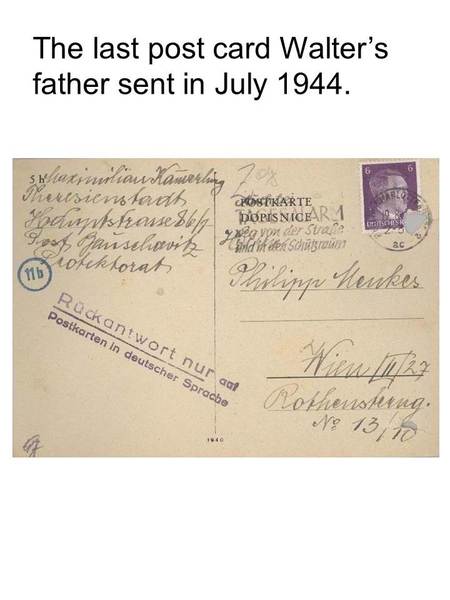 The last post card Walter's
father sent in July 1944.
Maximilian Kämerling
Theresienstadt
Hauptstrasse
Post Bauschowitz
Protektorat
11b
Rückantwort nur auf
Postkarten in deutscher Sprache
POSTKARTE
DOPISNICE
weg von der Straße
und in den Schutzraum
6 6
Philipp Menkes
Wien II/27
No 13/10
1940